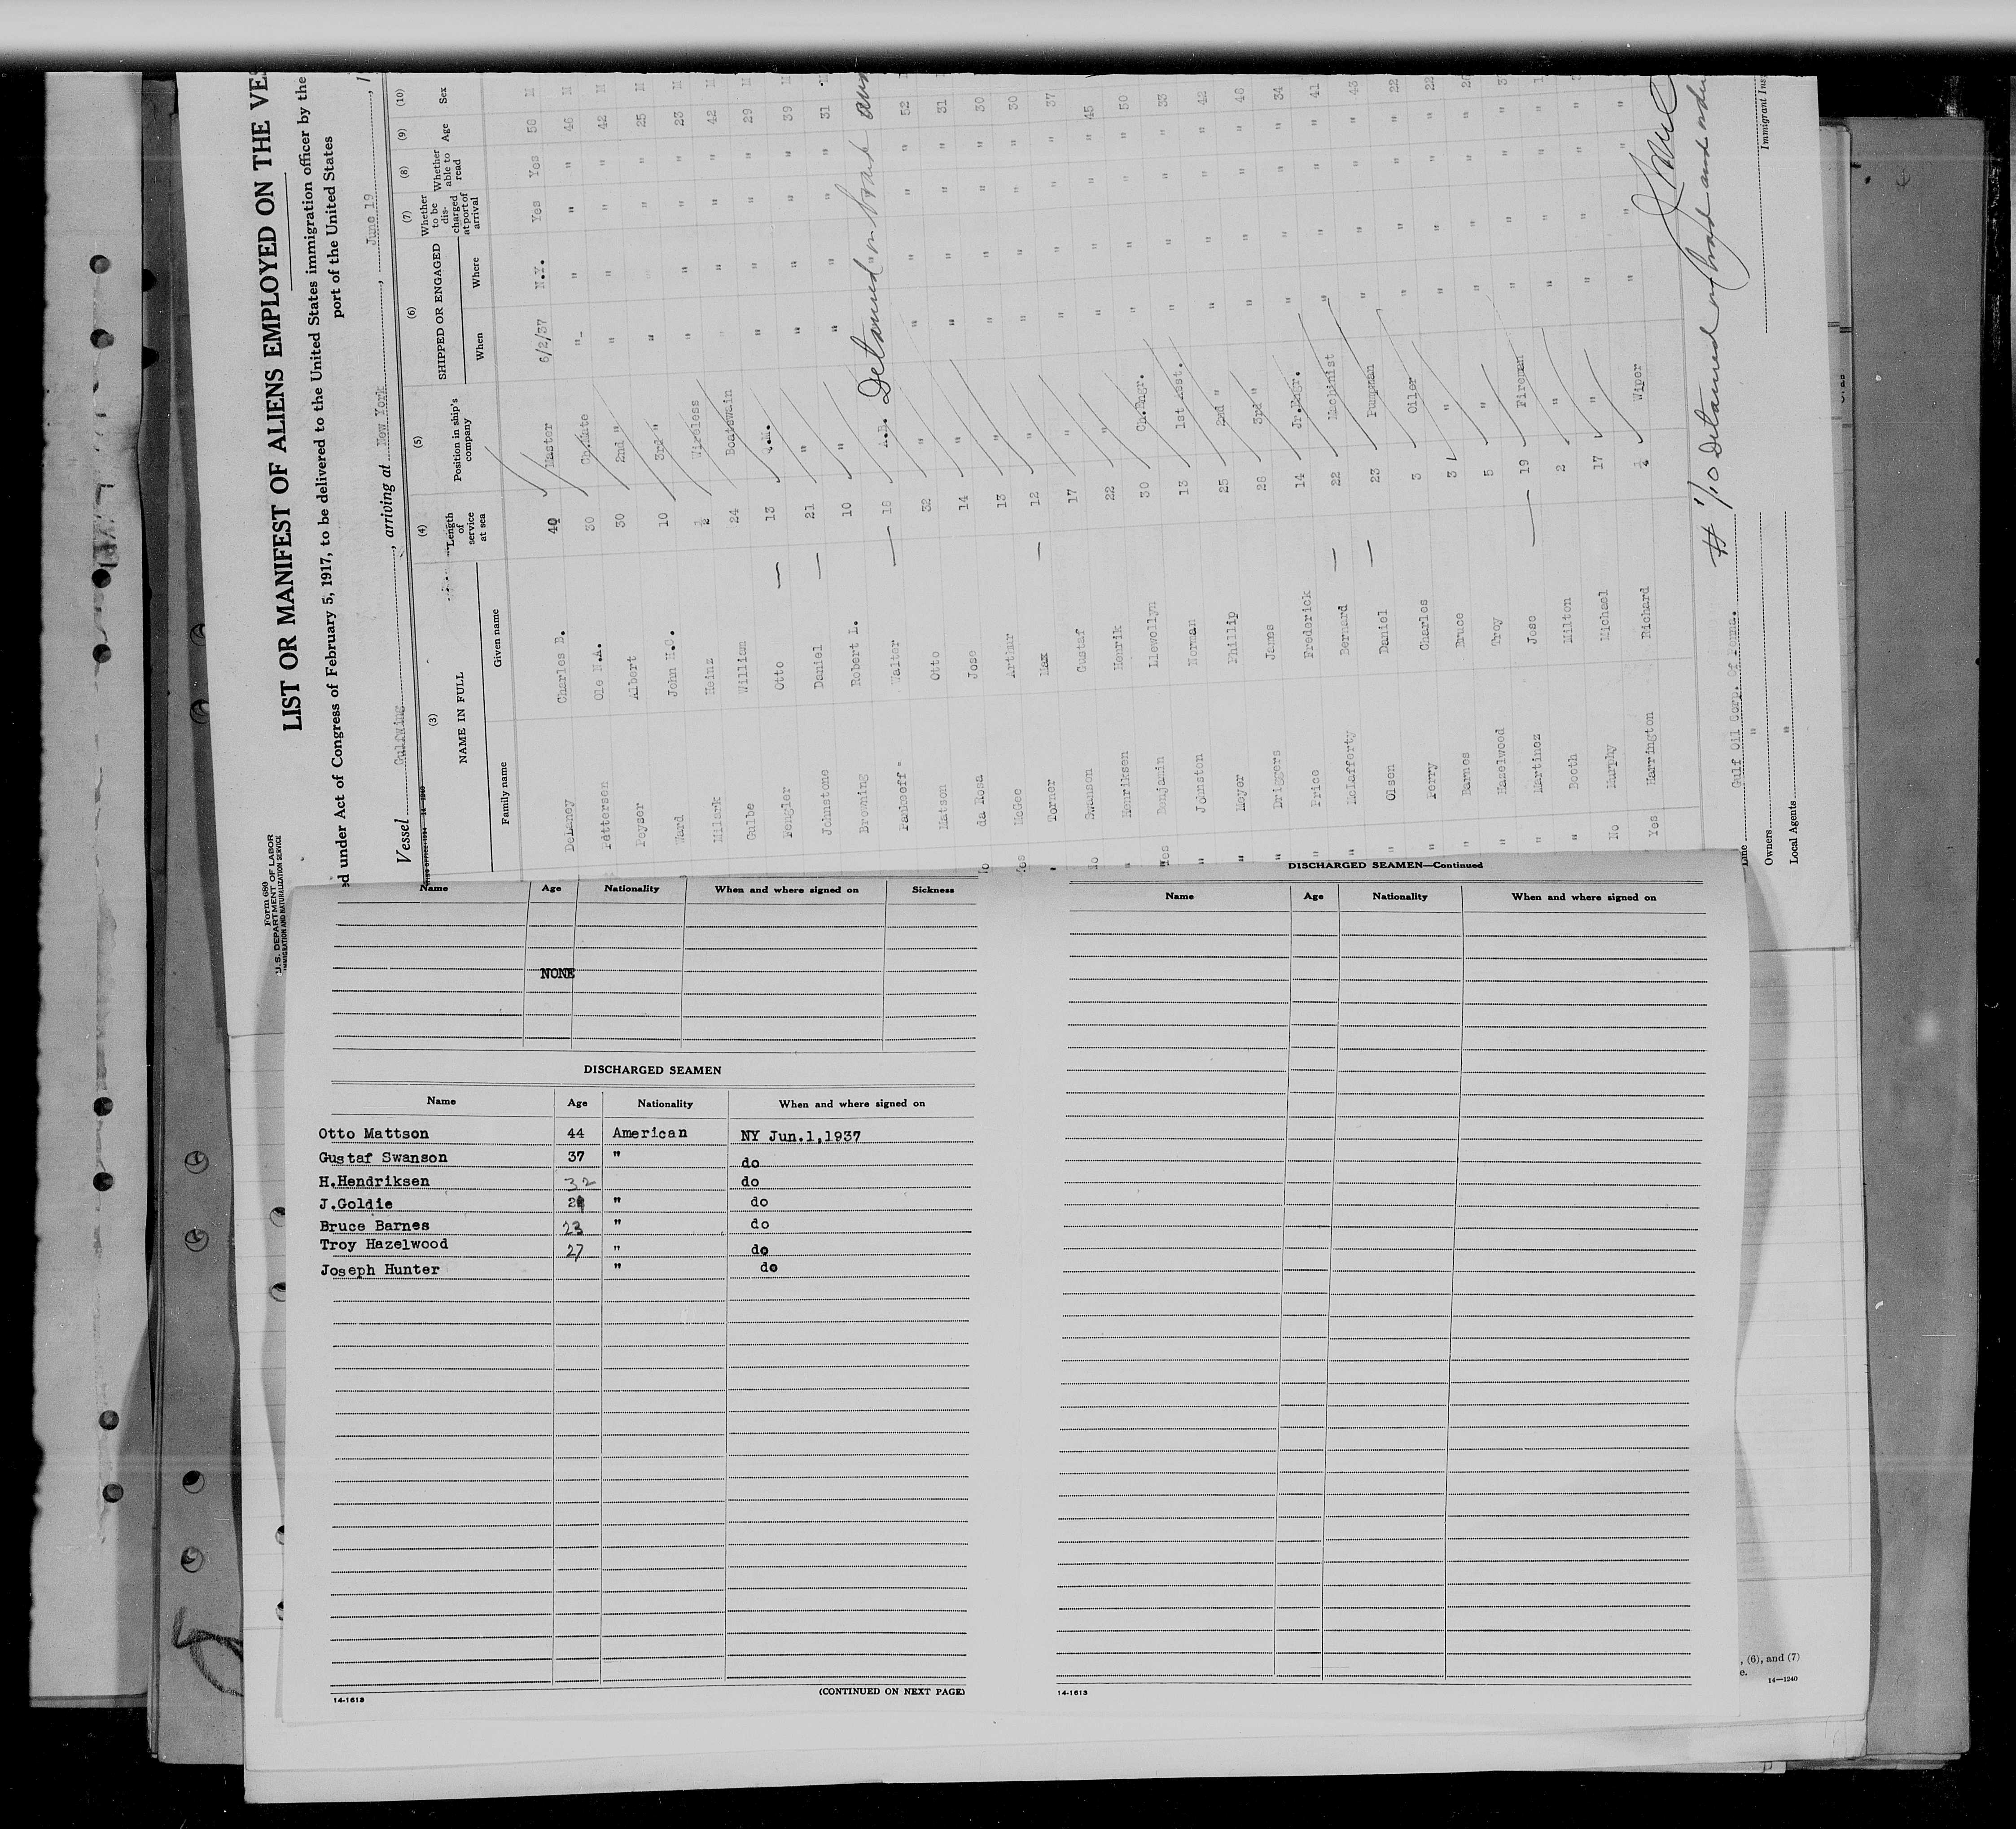 Form 680
U.S. DEPARTMENT OF LABOR
IMMIGRATION AND NATURALIZATION SERVICE
LIST OR MANIFEST OF ALIENS EMPLOYED ON THE VES
ed under Act of Congress of February 5, 1917, to be delivered to the United States immigration officer by the
port of the United States
Vessel Gulfwing, arriving at New York, June 19, 1
(3) (4) (5) (6) (7) (8) (9) (10)
NAME IN FULL Length of service at sea Position in ship's company SHIPPED OR ENGAGED Whether to be discharged at port of arrival Whether able to read Age Sex
Family name Given name When Where
Delaney Charles B. 40 Master 6/2/37 N.Y. Yes Yes 58 M
Pettersen Ole N.A. 30 Ch.Mate " " " " 46 M
Peyser Albert 30 2nd " " " " " 42 M
Ward John H.C. 10 3rd " " " " " 25 M
Milark Heinz ½ Wireless " " " " 23 M
Gulbe William 24 Boatswain " " " " 42 M
Fengler Otto 13 Q.M. " " " " 29 M
Johnstone Daniel 21 " " " " " 39 M
Browning Robert L. 10 " " " " " 31 M
Walter 18 A.B. Detained on board " " 52
Matson Otto 32 " " " " " 31
da Rosa Jose 14 " " " " " 30
McGee Arthur 13 " " " " " 30
Torner Max 12 " " " " " 37
Swanson Gustaf 17 " " " " " 45
Henriksen Henrik 22 " " " " " 50
Yes Benjamin Llewellyn 30 Ch.Engr. " " " " 33
" Johnston Norman 13 1st Asst. " " " " 42
" Meyer Phillip 25 2nd " " " " " 48
" Driggers James 28 3rd " " " " " 34
" Price Frederick 14 Jr.Engr. " " " " 41
" McLafferty Bernard 22 Machinist " " " " 43
" Olsen Daniel 23 Pumpman " " " " 22
" Perry Charles 3 Oiler " " " " 22
" Barnes Bruce 3 " " " " "
" Hazelwood Troy 5 " " " " "
" Martinez Jose 19 Fireman " " " "
" Booth Milton 2 " " " " "
No Murphy Michael 17 " " " " "
Yes Harrington Richard ½ Wiper " " " "
# 1/10 Detained on board and
Line Gulf Oil Corp. Of Penna.
Owners "
Local Agents "
Immigrant Ins
Name Age Nationality When and where signed on Sickness
NONE
DISCHARGED SEAMEN
Name Age Nationality When and where signed on
Otto Mattson 44 American NY Jun.1,1937
Gustaf Swanson 37 " do
H.Hendriksen 32 do
J.Goldie " do
Bruce Barnes 23 " do
Troy Hazelwood 27 " do
Joseph Hunter " do
14-1613 (CONTINUED ON NEXT PAGE)
DISCHARGED SEAMEN—Continued
Name Age Nationality When and where signed on
14-1613
, (6), and (7)
e.
14—1240